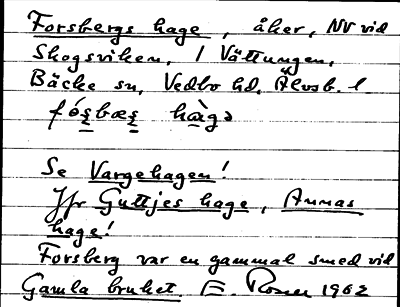 Forsbergs hage, åker, NV vid
Skogsviken, / Vättungen,
Bäcke sn, Vedbo hd, Älvsb. l.
fó̀ʂbæʂ hàgə
Se Vargehagen!
Jfr Guttjes hage, Annas
hage!
Forsberg var en gammal smed vid
Gamla bruket E. Rosen 1962